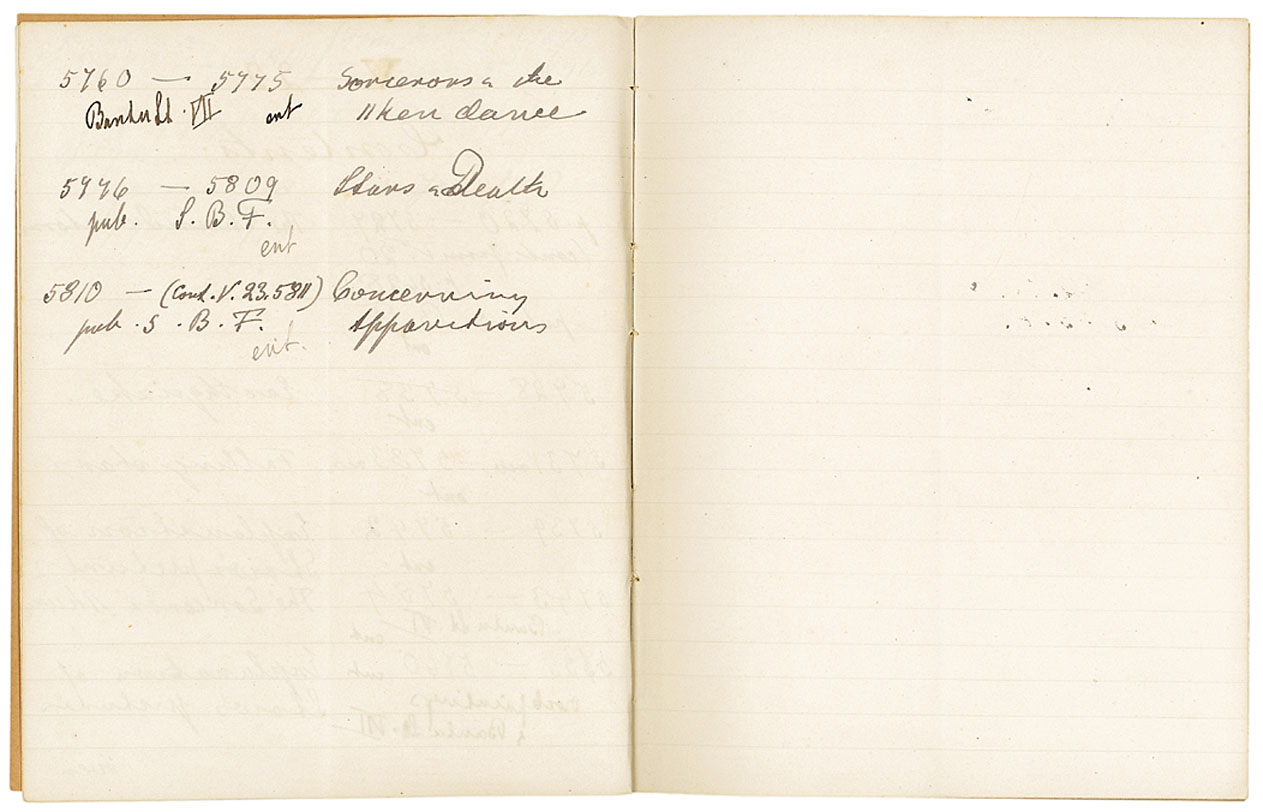 5760 — 5775 Sorcerors & the
Bantu St. VII ent ||ken dance
5776 — 5809 Stars & Death
pub. S. B. F.
ent
5810 — (Cont. V. 23. 5811) Concerning
pub. S. B. F. Apparitions
ent.